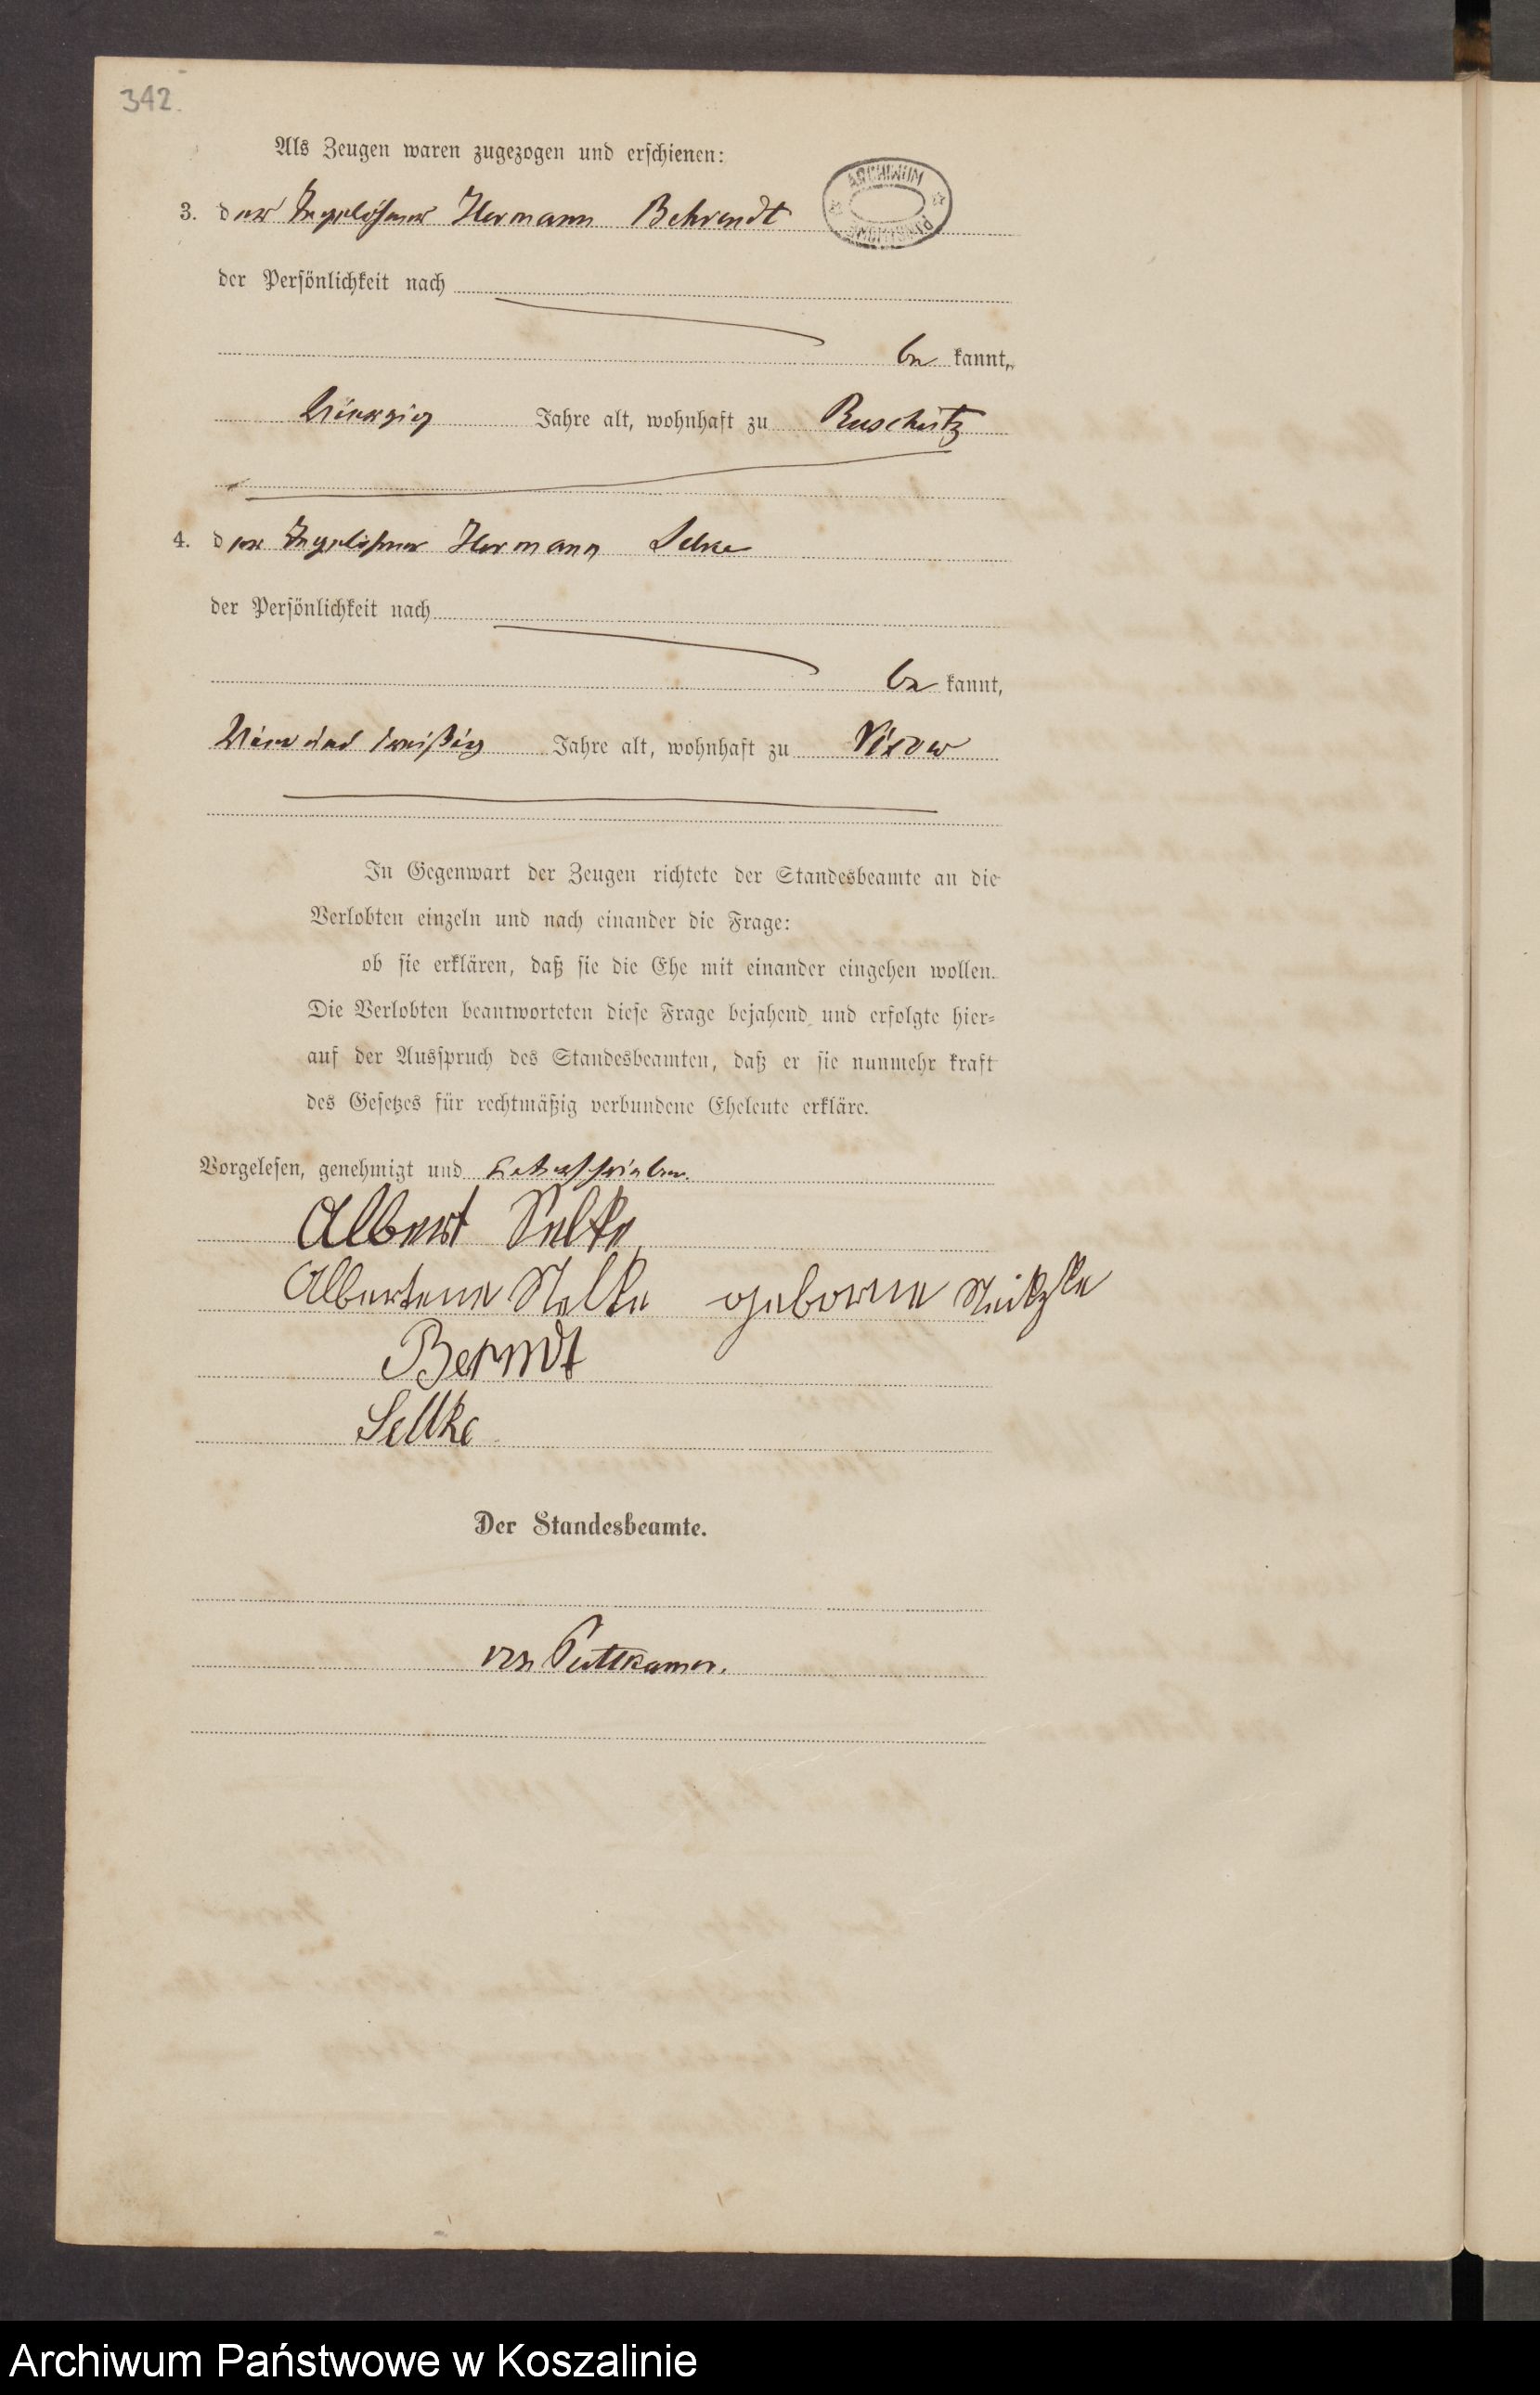 342.
Als Zeugen waren zugezogen und erschienen:
ARCHIWUM
3. der Tagelöhner Hermann Behrendt
der Persönlichkeit nach
be kannt,
vierzig Jahre alt, wohnhaft zu Ruschütz
4. der Tagelöhner Hermann Selke
der Persönlichkeit nach
be kannt,
vier und dreißig Jahre alt, wohnhaft zu Vixow
In Gegenwart der Zeugen richtete der Standesbeamte an die
Verlobten einzeln und nach einander die Frage:
ob sie erklären, daß sie die Ehe mit einander eingehen wollen.
Die Verlobten beantworteten diese Frage bejahend und erfolgte hier-
auf der Ausspruch des Standesbeamten, daß er sie nunmehr kraft
des Gesetzes für rechtmäßig verbundene Eheleute erkläre.
Vorgelesen, genehmigt und unterschrieben.
Albert Selke
Albertene Selke geborne
Berndt
Sellke
Der Standesbeamte.
von Puttkamer.
Archiwum Państwowe w Koszalinie